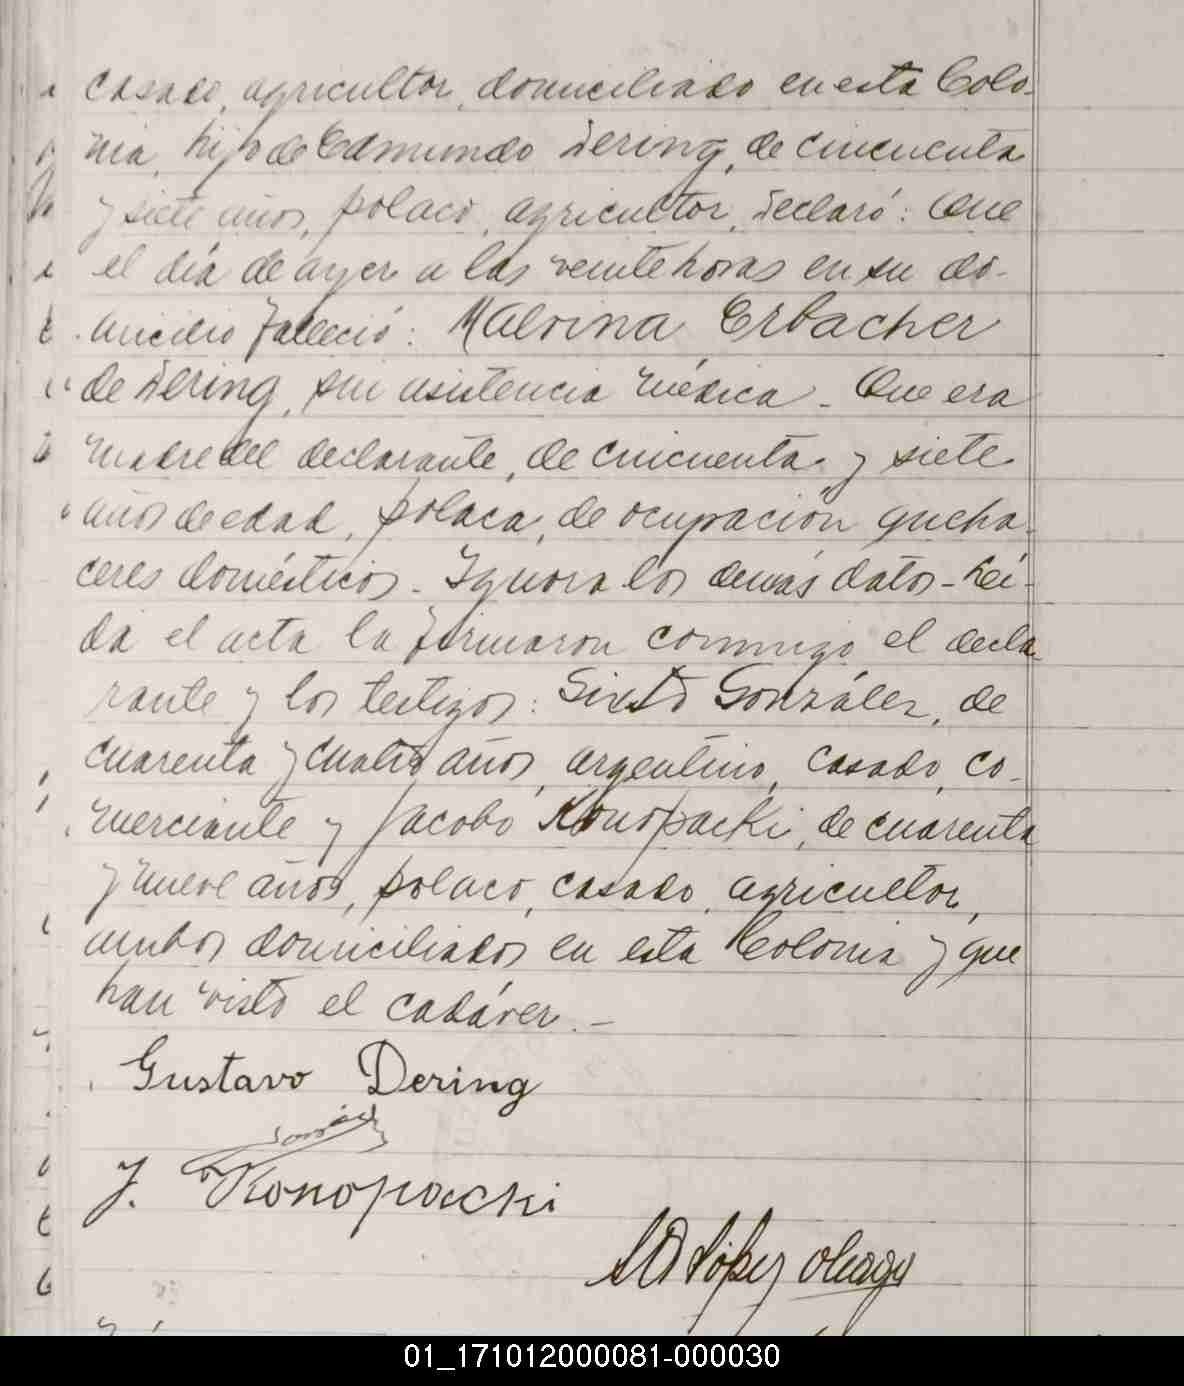 casado, agricultor, domiciliado en esta Colo-
nia, hijo de Edmundo Dering, de cincuenta
y siete años, polaco, agricultor, declaró: Que
el día de ayer a las veinte horas en su do-
micilio falleció: Malvina Erbacher
de Dering, sin asistencia médica - Que era
madre del declarante, de cincuenta y siete
años de edad, polaca, de ocupación queha-
ceres domésticos - Ignora los demás datos - Leí-
da el acta la firmaron conmigo el decla-
rante y los testigos: Sixto González, de
cuarenta y cuatro años, argentino, casado, co-
merciante y Jacobo Konopacki, de cuarenta
y nueve años, polaco, casado, agricultor,
ambos domiciliados en esta Colonia y que
han visto el cadáver. -
Gustavo Dering
J. Konopacki
López
01_171012000081-000030